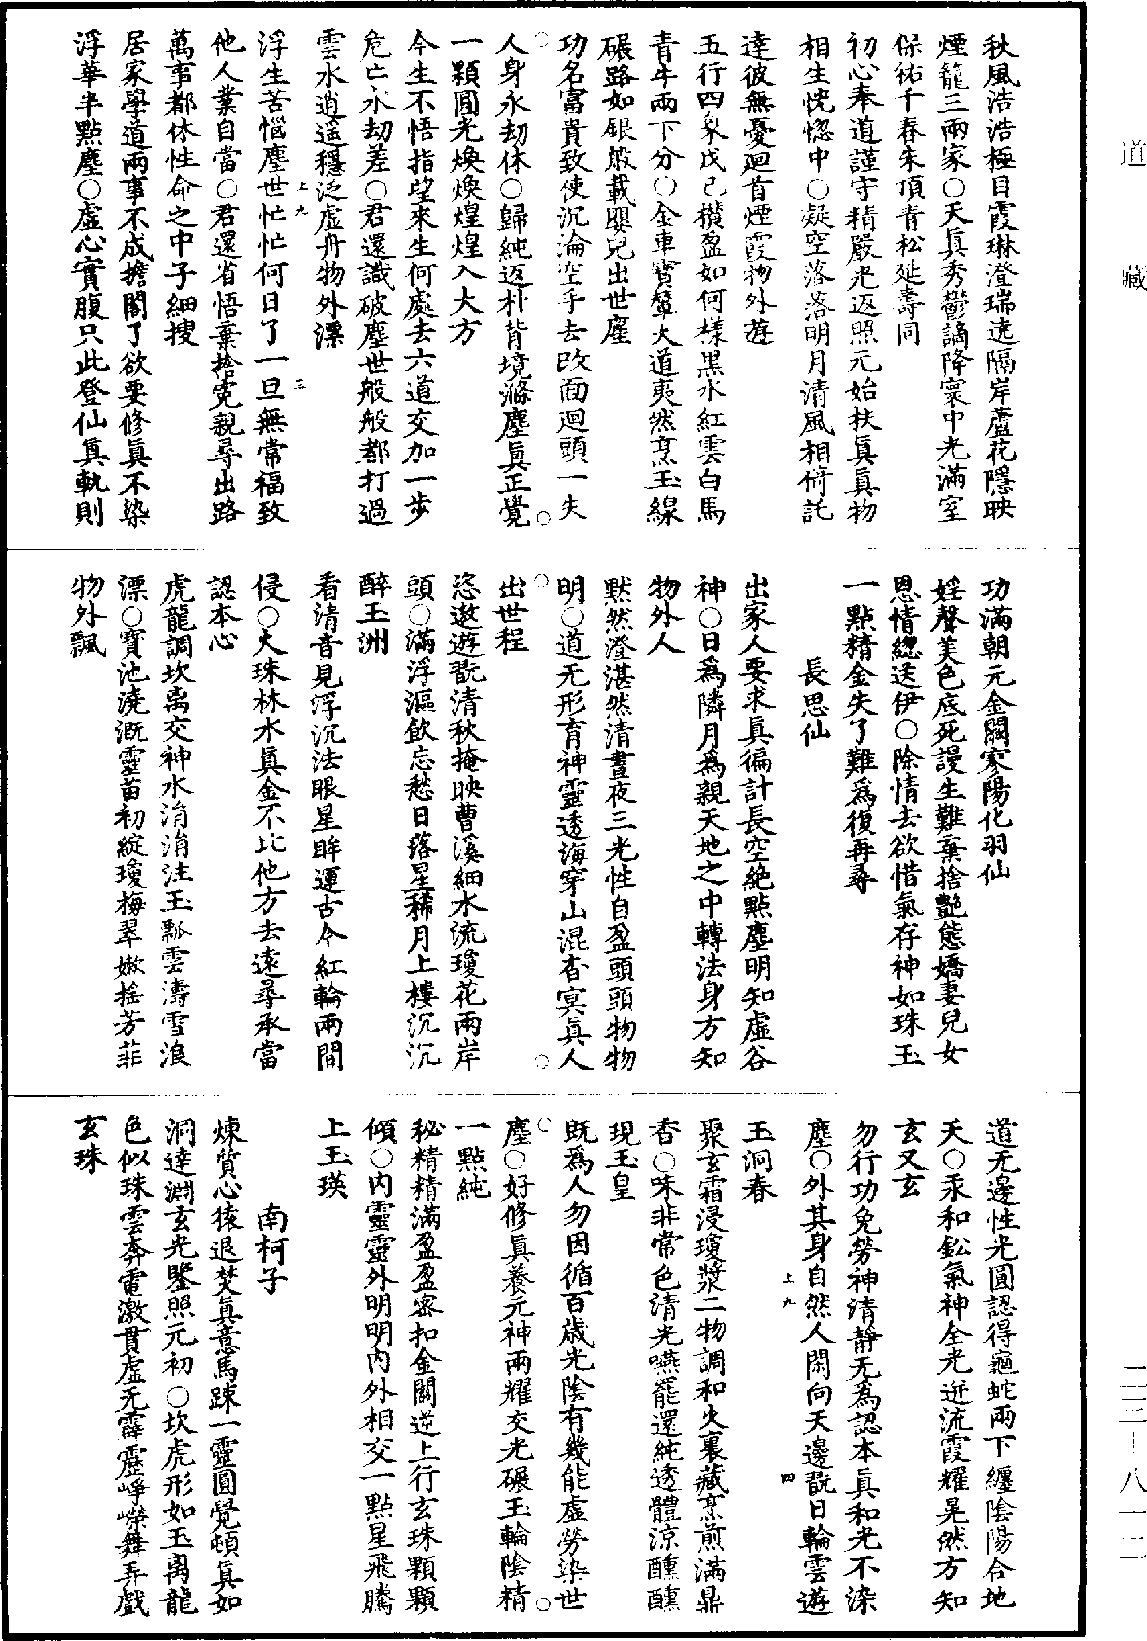 秋風浩浩極目霞琳澄瑞遶隔岸蘆花隱映
煙籠三兩家○天眞秀鬱謫降寰中光滿室
保祐千春朱頂青松延壽同
初心奉道謹守精嚴光返照元始扶眞眞物
相生恍惚中○凝空落落明月清風相倚託
達彼無憂迴首煙霞物外遊
五行四象戊己攢盈如何樣黑水紅雲白馬
青牛兩下分○金車寶輦大道夷然烹玉線
碾路如銀般載嬰兒出世塵
功名富貴致使沉淪空手去改面迴頭一失
人身永劫休○歸純返朴背境滌塵眞正覺
一顆圓光煥煥煌煌入大方
今生不悟指望來生何處去六道交加一步
危亡永劫差○君還識破塵世般般都打過
雲水逍遥穩泛虛舟物外漂
浮生苦惱塵世忙忙何日了一旦無常福致
他人業自當○君還省悟棄捨寃親尋出路
萬事都休性命之中子細搜
居家學道兩事不成擔閣了欲要修眞不染
浮華半點塵○虛心實腹只此登仙眞軌則
功滿朝元金闕寥陽化羽仙
婬聲美色底死謾生難棄捨艶態嬌妻兒女
恩情緫送伊○除情去欲惜氣存神如珠玉
一點精金失了難爲復再尋
長思仙
出家人要求眞徧計長空絶點塵明知虛谷
神○日爲隣月爲親天地之中轉法身方知
物外人
默然澄湛然清晝夜三光性自盈頭頭物物
明○道无形育神靈透海穿山混杳冥眞人
出世程
恣遨遊翫清秋掩映曹溪細水流瓊花兩岸
頭○滿浮漚飲忘愁日落星稀月上樓沉沉
醉玉洲
看清音見浮沉法眼星眸運古今紅輪兩間
侵○火珠林水眞金不比他方去遠尋承當
認本心
虎龍調坎离交神水涓涓注玉瓢雲濤雪浪
漂○寶池澆溉靈苗初綻瓊梅翠嫩摇芳菲
物外飄
道无邊性光圓認得龜蛇兩下纏陰陽合地
天○汞和鈆氣神全光逬流霞耀晃然方知
玄又玄
勿行功免勞神清静无爲認本眞和光不染
塵○外其身自然人閑向天邊翫日輪雲遊
玉洞春
聚玄霜浸瓊漿二物調和火裏藏烹煎滿鼎
香○味非常色清光嚥罷還純透體涼醺醺
現玉皇
既爲人勿因循百歲光陰有幾能虛勞染世
塵○好修眞養元神兩耀交光碾玉輪陰精
一點純
秘精精滿盈盈密扣金關逆上行玄珠顆顆
傾○内靈靈外明明内外相交一點星飛騰
上玉瑛
南柯子
煉質心猿退焚眞意馬踈一靈圓覺頓眞如
洞達淵玄光鑒照元初○坎虎形如玉离龍
色似珠雲奔電激貫虛无霹靂崢嶸舞弄戲
玄珠
上九
三
上九
四
道藏
二三—八一二